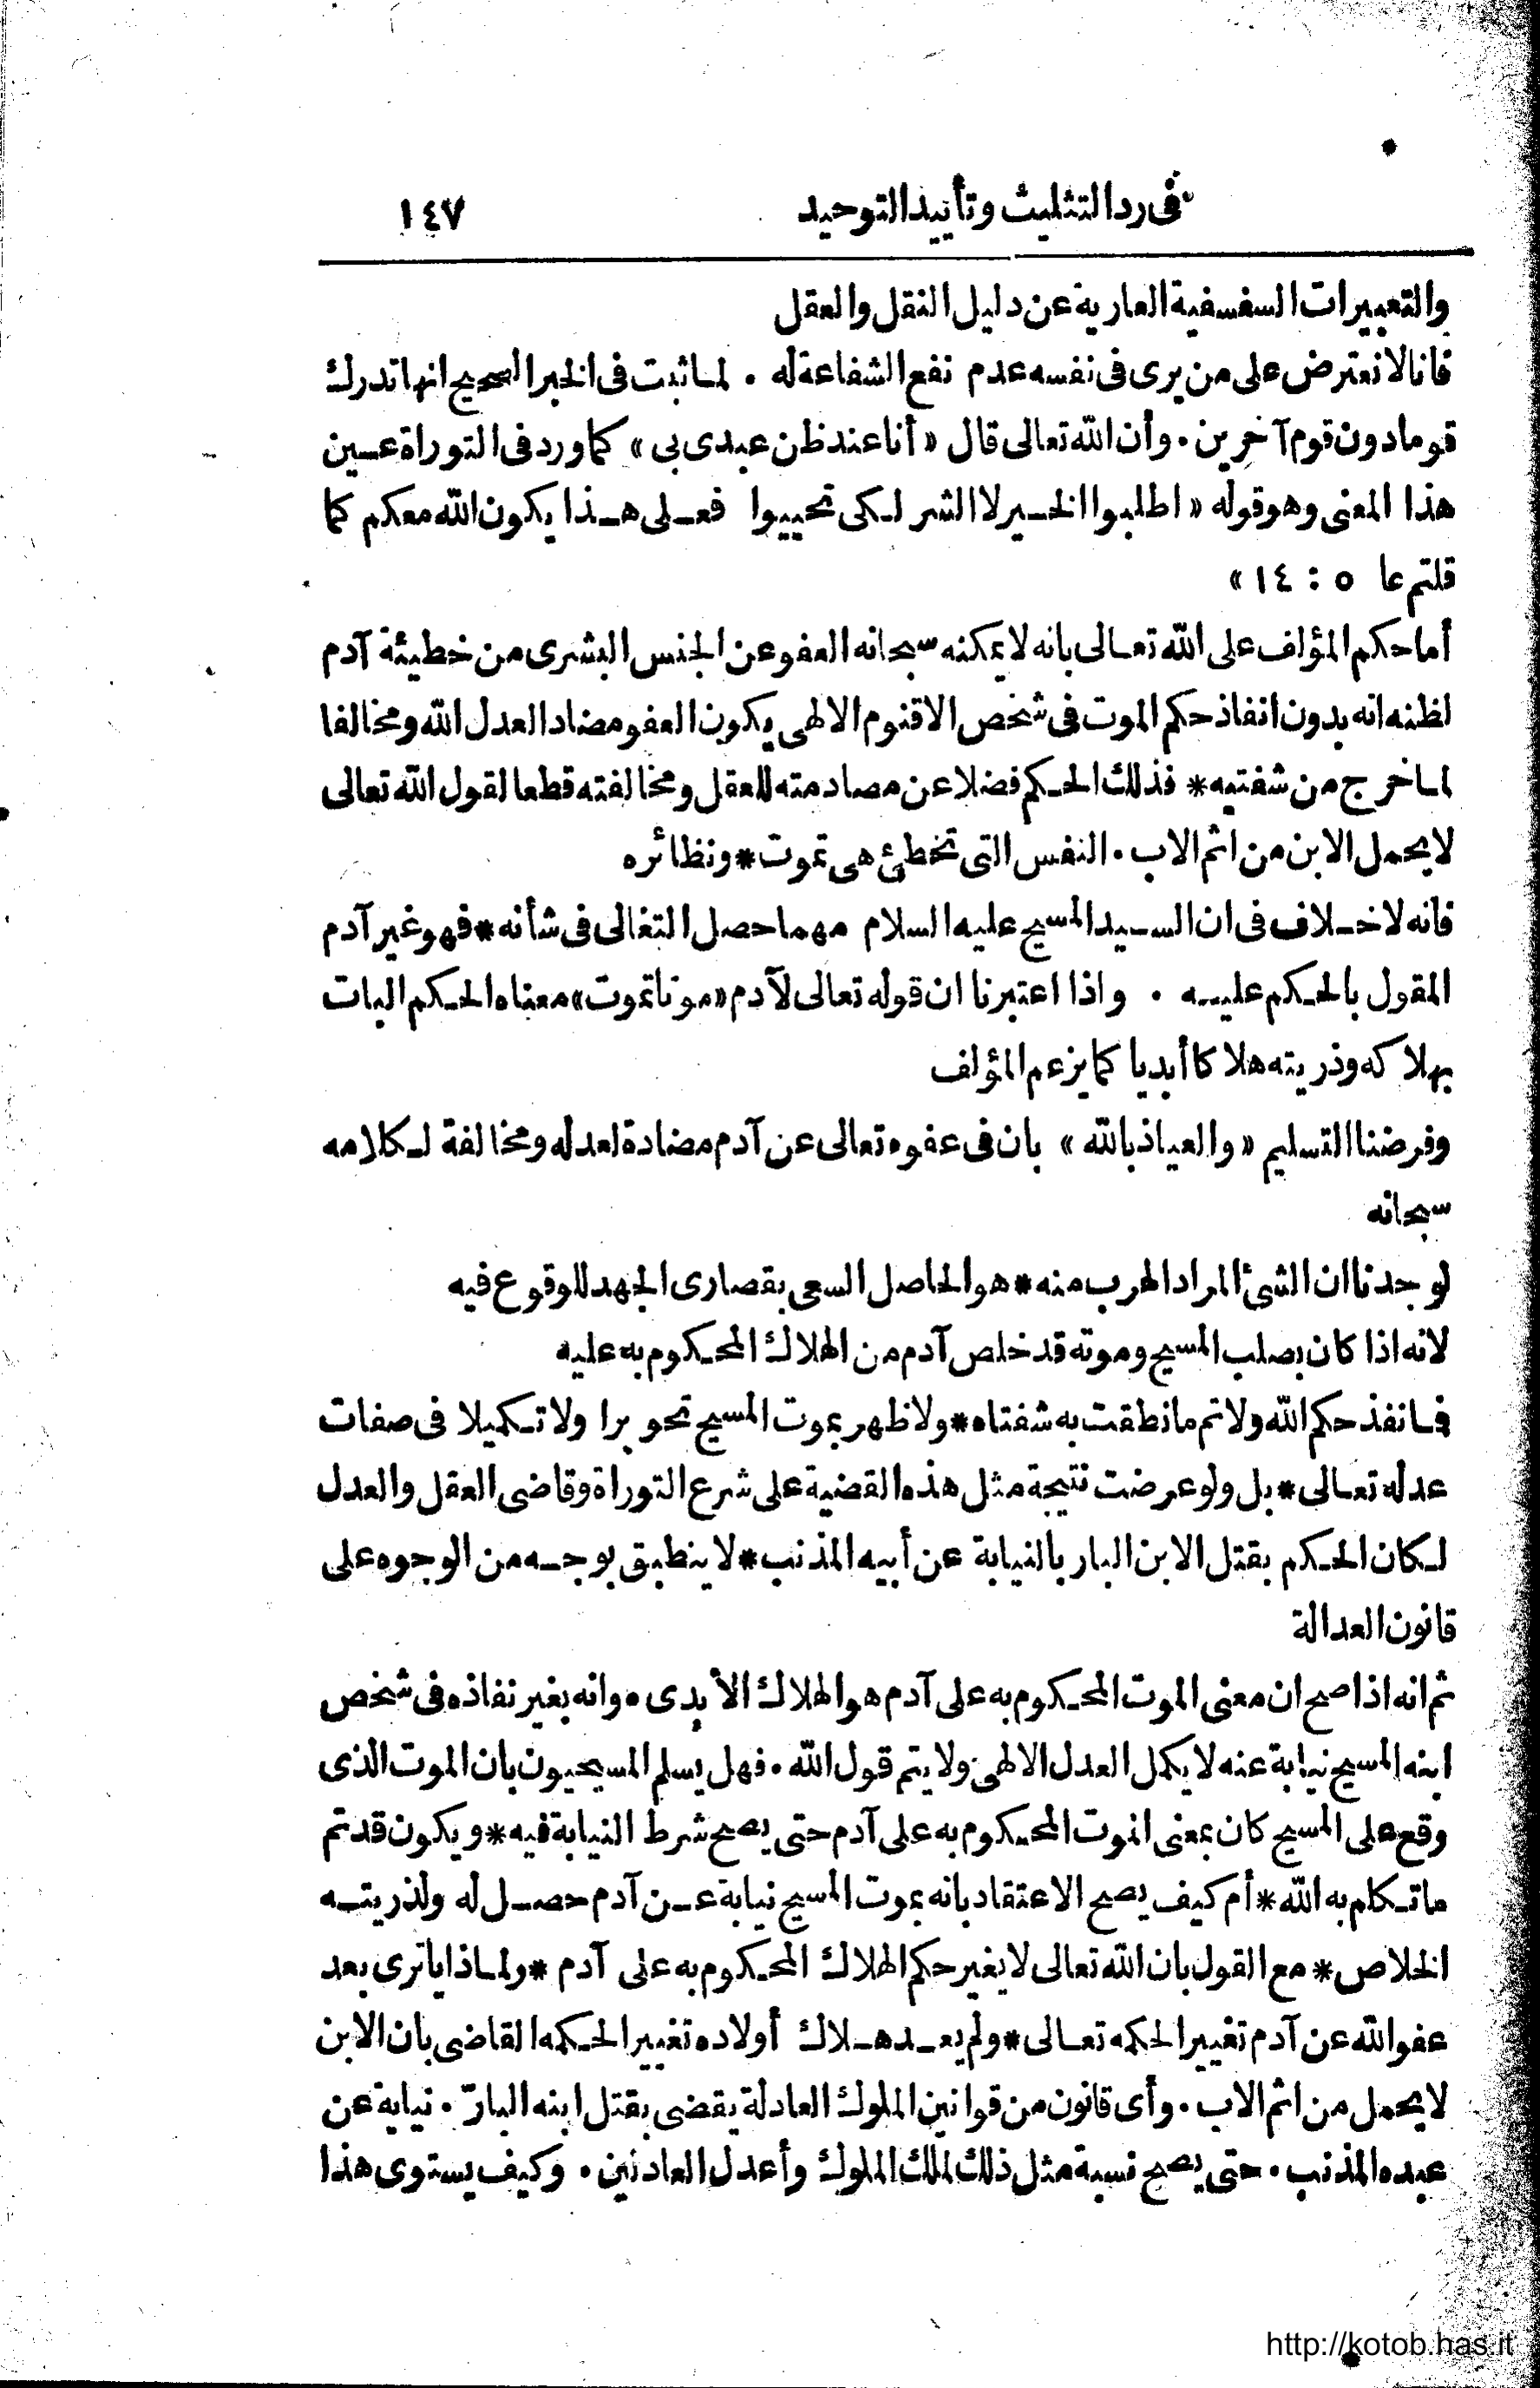 فى رد التثليث وتأييد التوحيد ١٤٧
والتعبيرات السفسفية العارية عن دليل النقل والعقل
فانا لا نعترض على من يرى فى نفسه عدم نفع الشفاعة له . لما ثبت فى الخبر الصحيح انها تدرك
قوما دون قوم آخرين . وأن الله تعالى قال « أنا عند ظن عبدى بى » كما ورد فى التوراة عين
هذا المعنى وهو قوله « اطلبوا الخير لا الشر لكى تحييوا فعلى هذا يكون الله معكم كما
قلتم عا ٥ : ١٤ »
أما حكم المؤلف على الله تعالى بانه لا يمكنه سبحانه العفو عن الجنس البشرى من خطيئة آدم
لظنه انه بدون انفاذ حكم الموت فى شخص الاقنوم الالهى يكون العفو مضادا لعدل الله ومخالفا
لما خرج من شفتيه * فذلك الحكم فضلا عن مصادمته للعقل ومخالفته قطعا لقول الله تعالى
لا يحمل الابن من اثم الاب . النفس التى تخطئ هى تموت * ونظائره
فانه لا خلاف فى ان السيد المسيح عليه السلام مهما حصل التغالى فى شأنه * فهو غير آدم
المقول بالحكم عليه . واذا اعتبرنا ان قوله تعالى لآدم « موتا تموت » معناه الحكم البات
بهلاكه وذريته هلاكا أبديا كما يزعم المؤلف
وفرضنا التسليم « والعياذ بالله » بان فى عفوه تعالى عن آدم مضادة لعدله ومخالفة لكلامه
سبحانه
لوجدنا ان الشئ المراد الهرب منه * هو الحاصل السعى بقصارى الجهد للوقوع فيه
لانه اذا كان بصلب المسيح وموته قد خلص آدم من الهلاك المحكوم به عليه
فما نفذ حكم الله ولا تم ما نطقت به شفتاه * ولا ظهر بموت المسيح تحويرا ولا تكميلا فى صفات
عدله تعالى * بل ولو عرضت نتيجة مثل هذه القضية على شرع التوراة وقاضى العقل والعدل
لكان الحكم بقتل الابن البار بالنيابة عن أبيه المذنب * لا ينطبق بوجه من الوجوه على
قانون العدالة
ثم انه اذا صح ان معنى الموت المحكوم به على آدم هو الهلاك الأبدى . وانه بغير نفاذه فى شخص
ابنه المسيح نيابة عنه لا يكمل العدل الالهى ولا يتم قول الله . فهل يسلم المسيحيون بان الموت الذى
وقع على المسيح كان بمعنى الموت المحكوم به على آدم حتى يصح شرط النيابة فيه * ويكون قد تم
ما تكلم به الله * أم كيف يصح الاعتقاد بانه بموت المسيح نيابة عن آدم حصل له ولذريته
الخلاص * مع القول بان الله تعالى لا يغير حكم الهلاك المحكوم به على آدم * ولماذا ياترى يعد
عفو الله عن آدم تغييرا لحكمه تعالى * ولم يعد هلاك أولاده تغييرا لحكمه القاضى بان الابن
لا يحمل من اثم الاب . وأى قانون من قوانين الملوك العادلة يقضى بقتل ابنه البارّ . نيابة عن
عبده المذنب . حتى يصح نسبة مثل ذلك لملك الملوك وأعدل العادلين . وكيف يستوى هذا
http://kotob.has.it